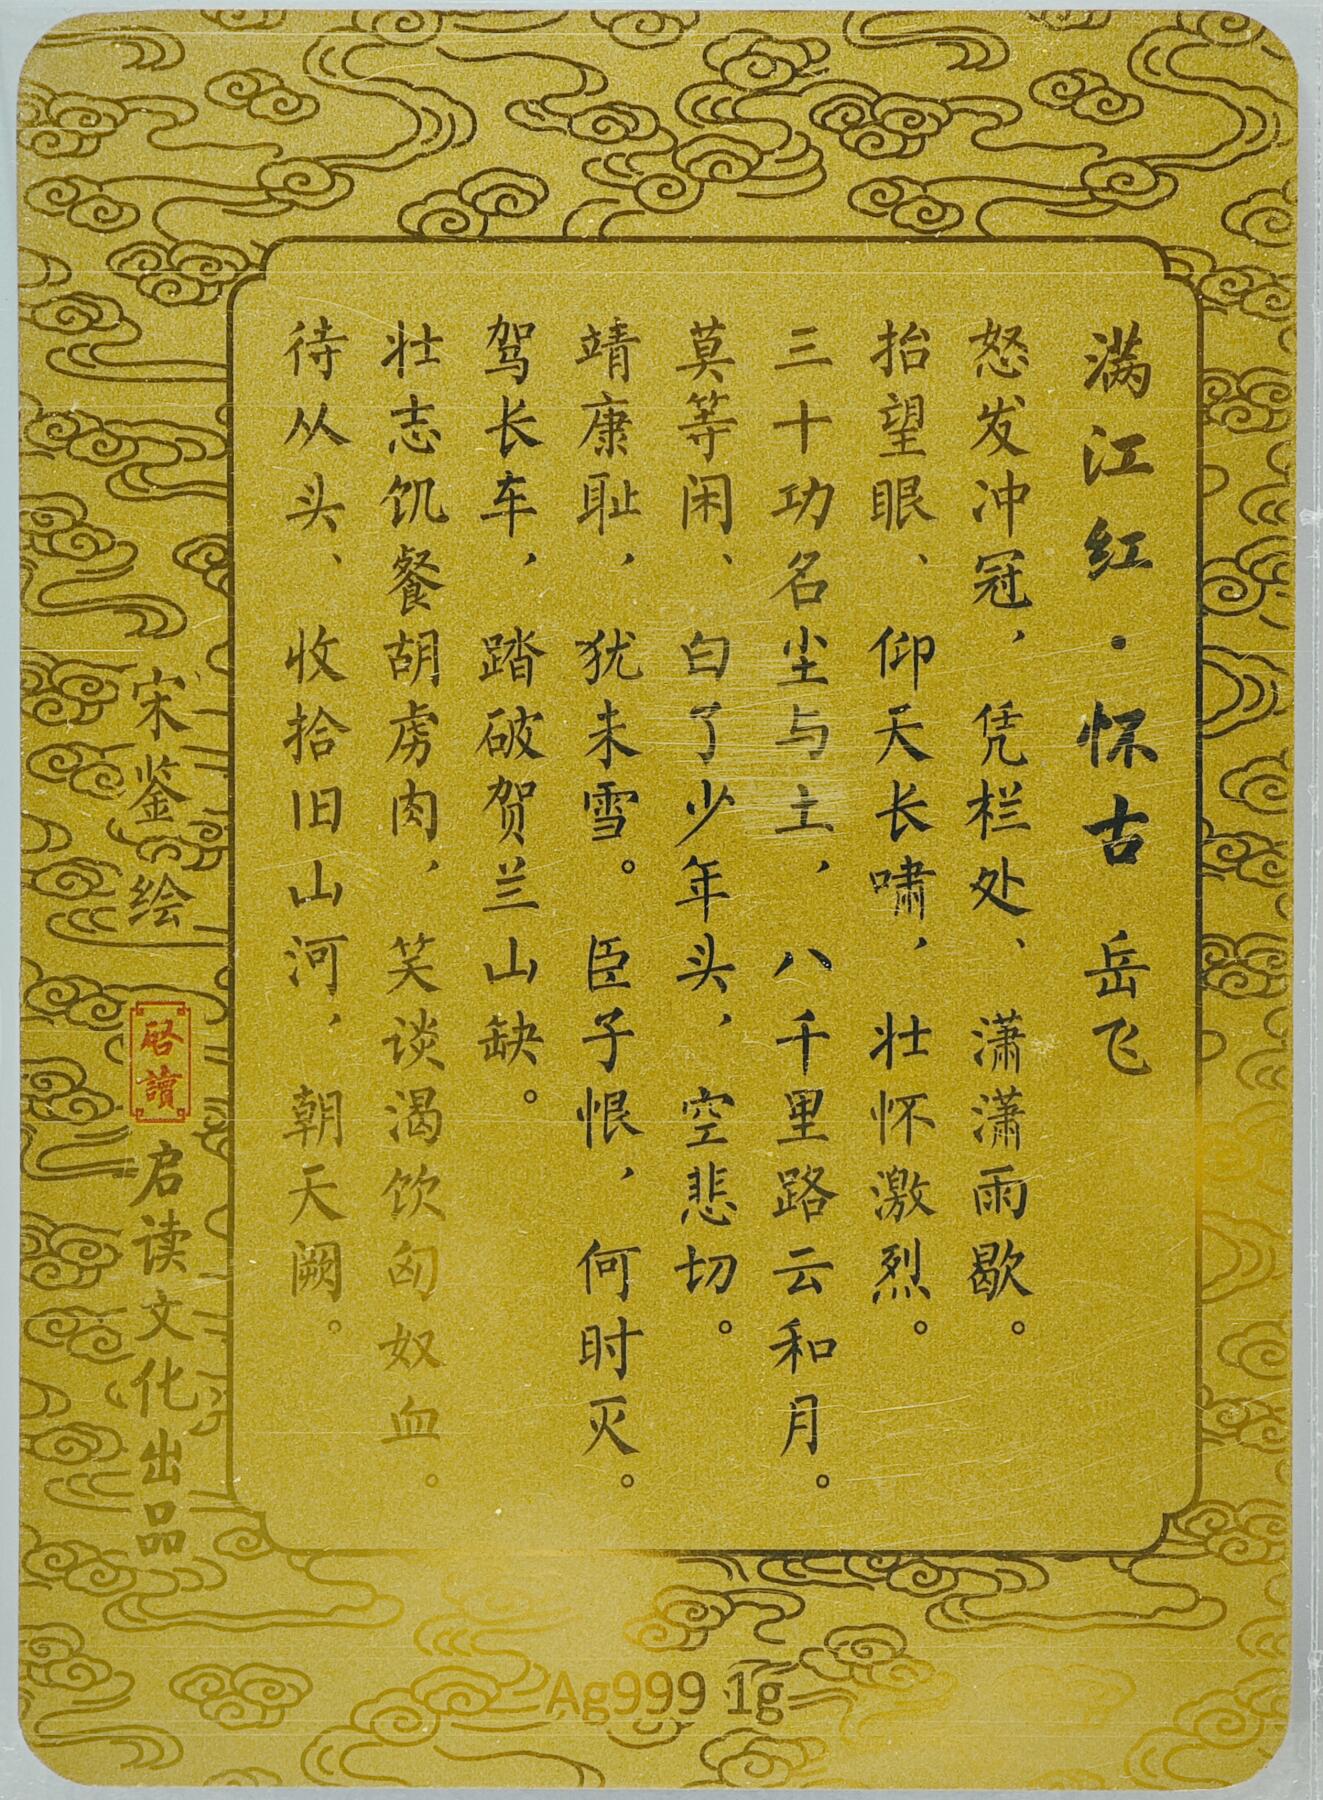 满江红·怀古 岳飞
怒发冲冠，凭栏处、潇潇雨歇。
抬望眼、仰天长啸，壮怀激烈。
三十功名尘与土，八千里路云和月。
莫等闲、白了少年头，空悲切。
靖康耻，犹未雪。臣子恨，何时灭。
驾长车，踏破贺兰山缺。
壮志饥餐胡虏肉，笑谈渴饮匈奴血。
待从头、收拾旧山河，朝天阙。
宋鉴绘
啟讀
启读文化出品
Ag999 1g